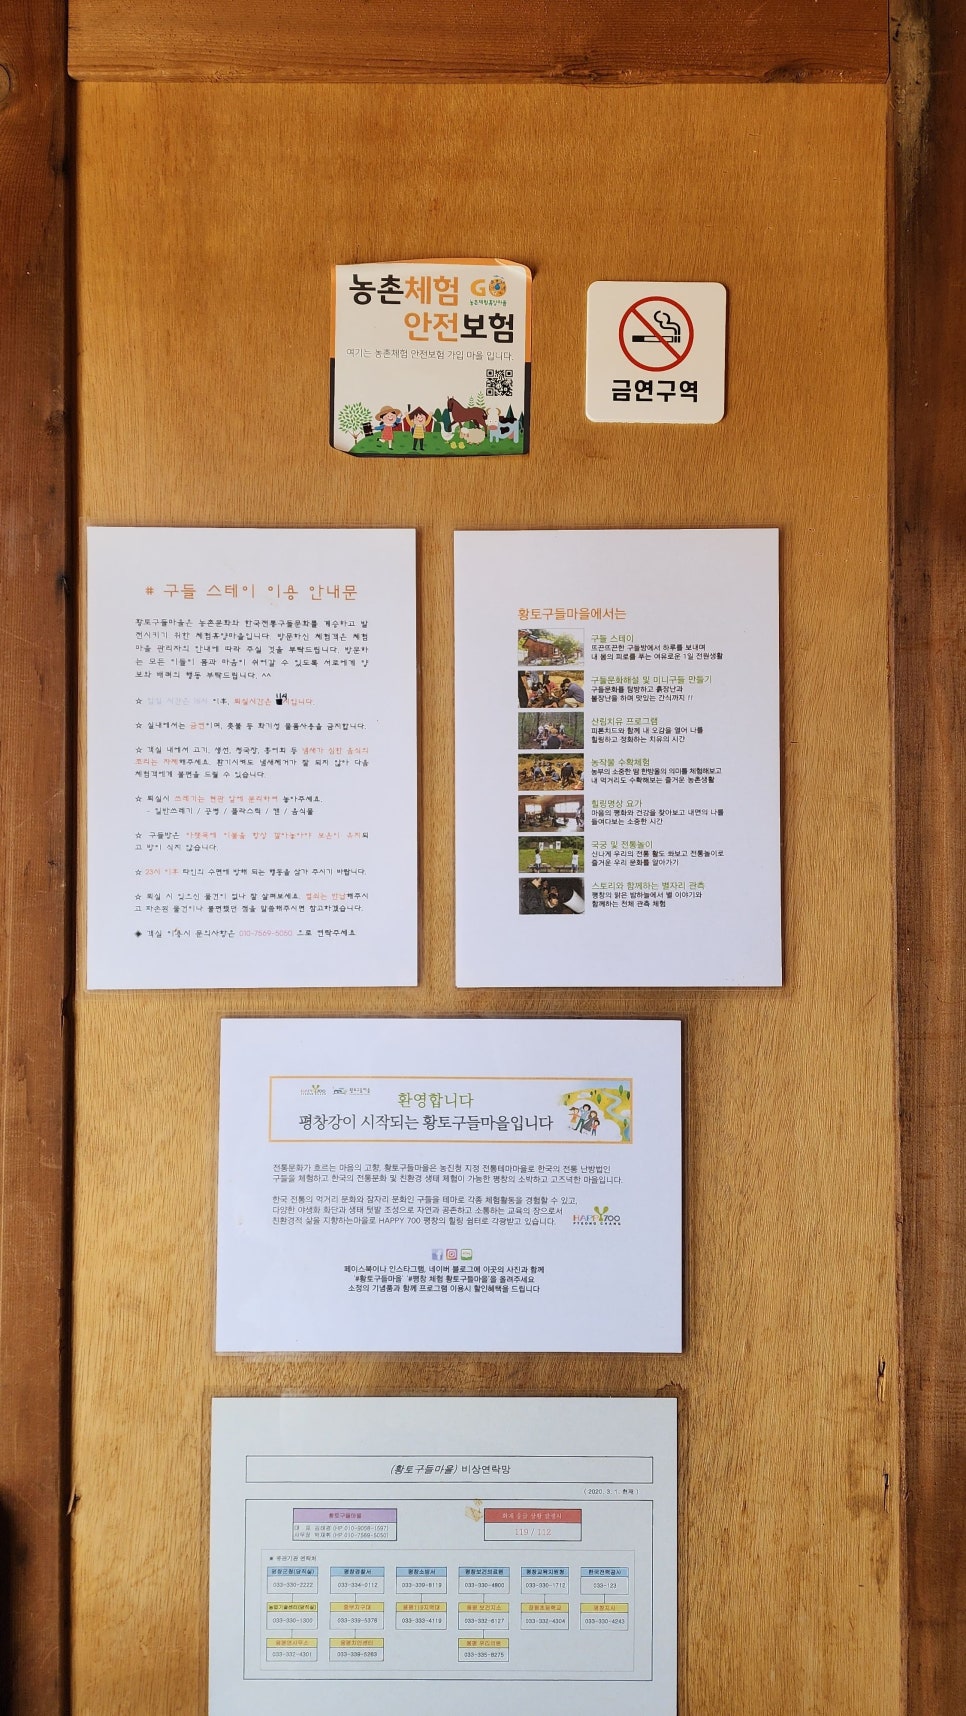 농촌체험 GO
농촌체험휴양마을
안전보험
여기는 농촌체험 안전보험 가입 마을 입니다.
금연구역
# 구들 스테이 이용 안내문
황토구들마을은 농촌문화와 한국전통구들문화를 계승하고 발
전시키기 위한 체험휴양마을입니다. 방문하신 체험객은 체험
마을 관리자의 안내에 따라 주실 것을 부탁드립니다. 방문하
는 모든 이들이 몸과 마음이 쉬어갈 수 있도록 서로에게 양
보와 배려의 행동 부탁드립니다. ^^
☆ 입실 시간은 이후, 퇴실시간은 시입니다.
☆ 실내에서는 금연이며, 촛불 등 화기성 물품사용을 금지합니다.
☆ 객실 내에서 고기, 생선, 청국장, 홍어회 등 냄새가 심한 음식의
조리는 자제해주세요. 환기시켜도 냄새제거가 잘 되지 않아 다음
체험객에게 불편을 드릴 수 있습니다.
☆ 퇴실시 쓰레기는 현관 앞에 분리하여 놓아주세요.
- 일반쓰레기 / 공병 / 플라스틱 / 캔 / 음식물
☆ 구들방은 아랫목에 이불을 항상 깔아놓아야 보온이 유지되
고 방이 식지 않습니다.
☆ 23시 이후 타인의 수면에 방해 되는 행동을 삼가 주시기 바랍니다.
☆ 퇴실 시 잊으신 물건이 없나 잘 살펴보세요. 열쇠는 반납해주시
고 파손된 물건이나 불편했던 점을 말씀해주시면 참고하겠습니다.
◈ 객실 이용시 문의사항은 010-7569-5050 으로 연락주세요
황토구들마을에서는
구들 스테이
뜨끈뜨끈한 구들방에서 하루를 보내며
내 몸의 피로를 푸는 여유로운 1일 전원생활
구들문화해설 및 미니구들 만들기
구들문화를 탐방하고 흙장난과
불장난을 하며 맛있는 간식까지 !!
산림치유 프로그램
피톤치드와 함께 내 오감을 열어 나를
힐링하고 정화하는 치유의 시간
농작물 수확체험
농부의 소중한 땀 한방울의 의미를 체험해보고
내 먹거리도 수확해보는 즐거운 농촌생활
힐링명상 요가
마음의 평화와 건강을 찾아보고 내면의 나를
들여다보는 소중한 시간
국궁 및 전통놀이
신나게 우리의 전통 활도 쏴보고 전통놀이로
즐거운 우리 문화를 알아가기
스토리와 함께하는 별자리 관측
평창의 맑은 밤하늘에서 별 이야기와
함께하는 천체 관측 체험
HAPPY700 황토구들마을
환영합니다
평창강이 시작되는 황토구들마을입니다
전통문화가 흐르는 마을의 고향, 황토구들마을은 농진청 지정 전통테마마을로 한국의 전통 난방법인
구들을 체험하고 한국의 전통문화 및 친환경 생태 체험이 가능한 평창의 소박하고 고즈넉한 마을입니다.
한국 전통의 먹거리 문화와 잠자리 문화인 구들을 테마로 각종 체험활동을 경험할 수 있고,
다양한 야생화 화단과 생태 텃밭 조성으로 자연과 공존하고 소통하는 교육의 장으로서
친환경적 삶을 지향하는마을로 HAPPY 700 평창의 힐링 쉼터로 각광받고 있습니다.
HAPPY700
PYEONGCHANG
페이스북이나 인스타그램, 네이버 블로그에 이곳의 사진과 함께
'#황토구들마을' '#평창 체험 황토구들마을'을 올려주세요
소정의 기념품과 함께 프로그램 이용시 할인혜택을 드립니다
(황토구들마을) 비상연락망
( 2020. 3. 1. 현재 )
황토구들마을
화재 응급 상황 발생시
119 / 112
※ 유관기관 연락처
평창군청(당직실) 평창경찰서 평창소방서 평창보건의료원 평창교육지원청 한국전력공사
033-330-2222 033-334-0112 033-339-8119 033-330-4800 033-330-1712 033-123
농업기술센터(당직실) 중부지구대 봉평119지역대 봉평 보건지소 평창지사
033-330-1300 033-339-5378 033-333-4119 033-332-6127 033-332-4304 033-330-4243
033-332-4301 033-339-5263 033-335-8275